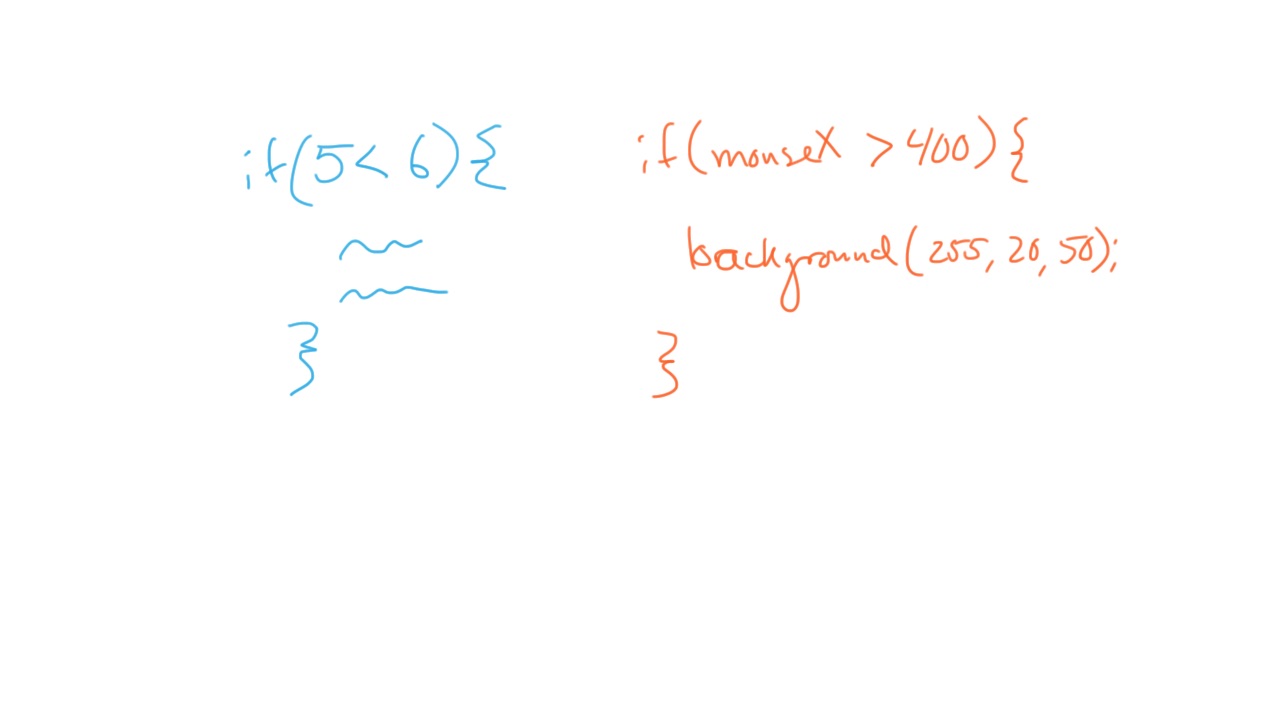 if(5< 6){
}
if(mouseX > 400){
background(255, 20, 50);
}